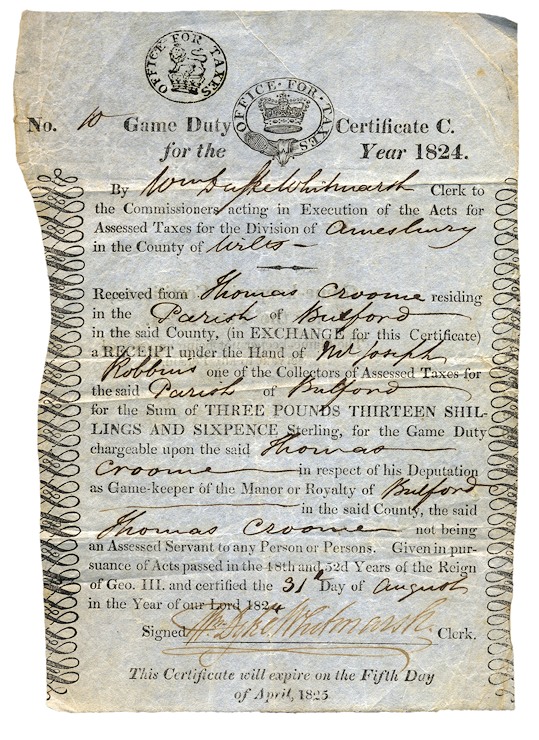 OFFICE FOR TAXES
OFFICE · FOR · TAXES
No. 10 Game Duty Certificate C.
for the Year 1824.
By Wm Dyke Whitmarsh Clerk to
the Commissioners acting in Execution of the Acts for
Assessed Taxes for the Division of Amesbury
in the County of Wilts —
Received from Thomas Croome residing
in the Parish of Bulford
in the said County, (in EXCHANGE for this Certificate)
a RECEIPT under the Hand of Mr Joseph
Robbins one of the Collectors of Assessed Taxes for
the said Parish of Bulford
for the Sum of THREE POUNDS THIRTEEN SHIL-
LINGS AND SIXPENCE Sterling, for the Game Duty
chargeable upon the said Thomas
Croome in respect of his Deputation
as Game-keeper of the Manor or Royalty of Bulford
in the said County, the said
Thomas Croome not being
an Assessed Servant to any Person or Persons. Given in pur-
suance of Acts passed in the 48th and 52d Years of the Reign
of Geo. III. and certified the 31st Day of August
in the Year of our Lord 1824
Signed Wm Dyke Whitmarsh Clerk.
This Certificate will expire on the Fifth Day
of April, 1825